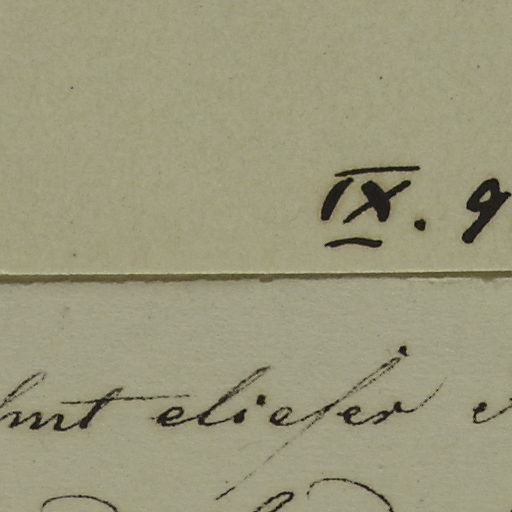 IX. 9
hmt dieser